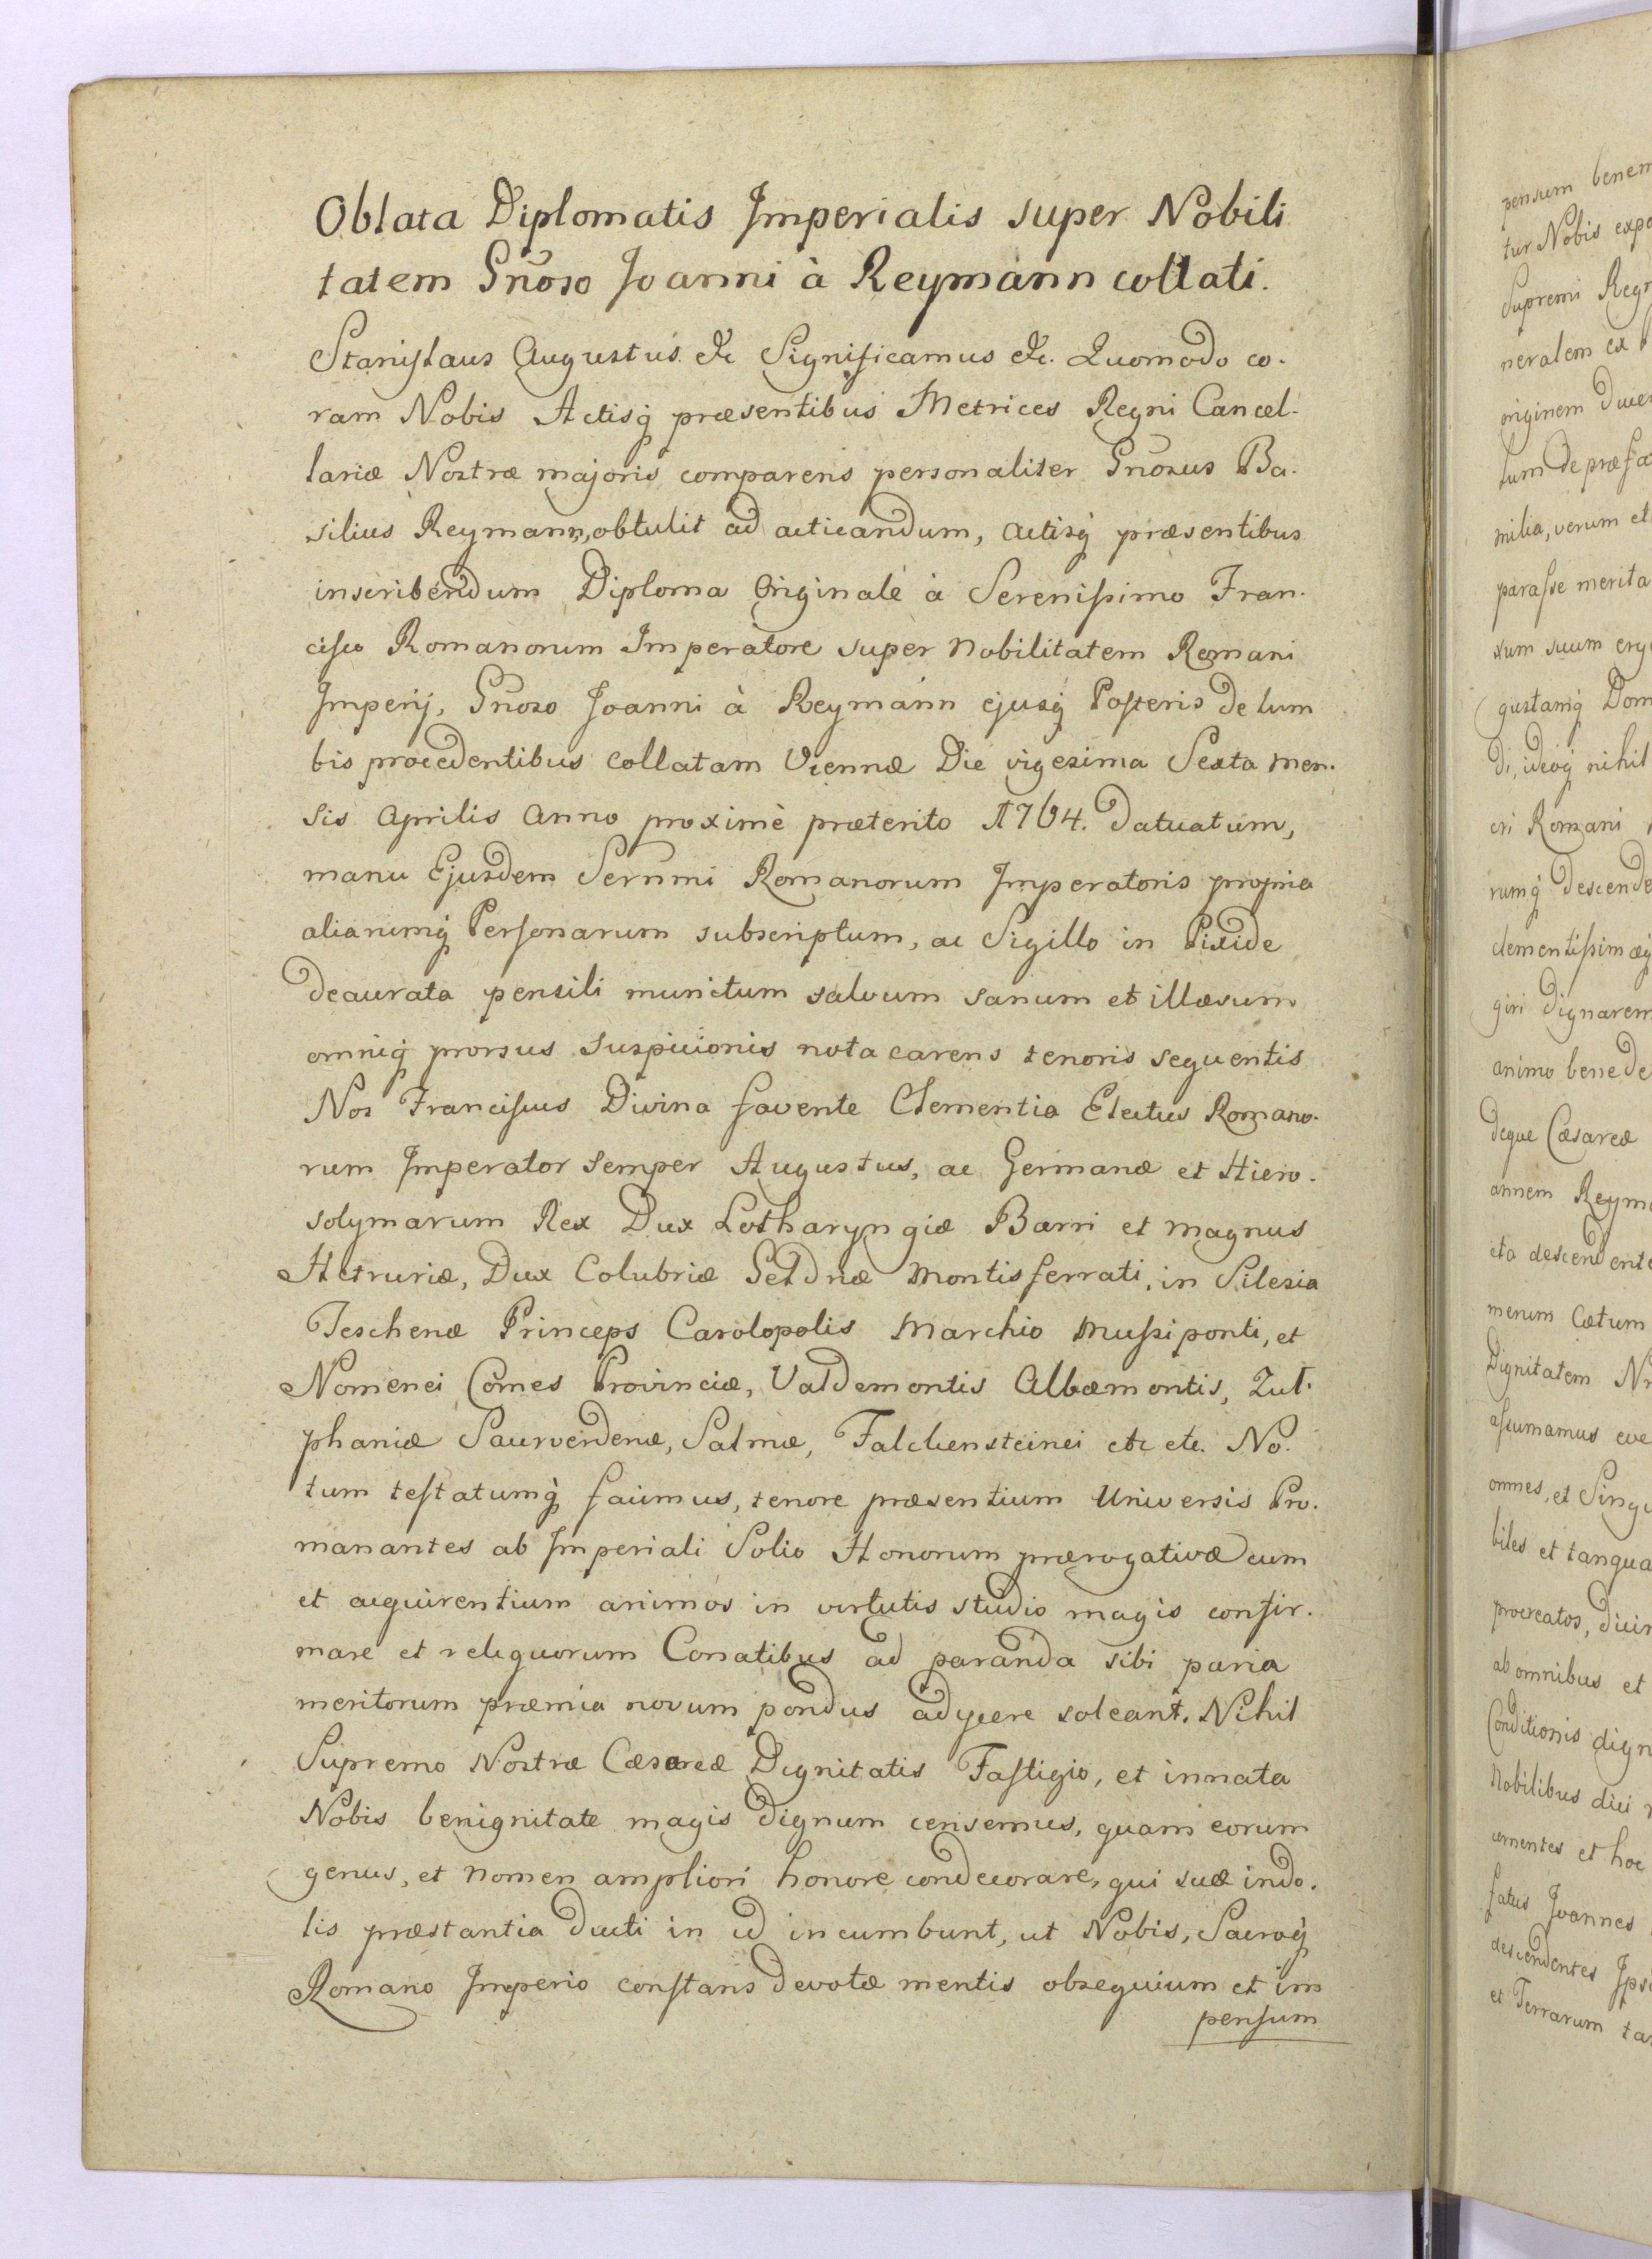 Oblata Diplomatis Imperialis super Nobili
tatem Gñoso Joanni à Reymann collati.
Stanislaus Augustus &c Significamus &c. Quomodo co-
ram Nobis Actisq̃ præsentibus Metrices Regni Cancel-
lariæ Nostræ majoris comparens personaliter Gñosus Ba-
silius Reymann, obtulit ad acticandum, actisq̃ præsentibus
inscribendum Diploma Originale à Serenissimo Fran-
cisco Romanorum Imperatore super nobilitatem Romani
Imperij, Gñoso Joanni à Reymann ejusq̃ Posteris de lum
bis procedentibus collatam Viennæ Die vigesima Sexta men-
sis Aprilis Anno proximè præterito 1764. datuatum,
manu Ejusdem Sernmi Romanorum Imperatoris propria
aliarumq̃ Personarum subscriptum, ac Sigillo in Pixide
deaurata pensili munitum salvum sanum et illæsum
omniq̃ prorsus suspicionis nota carens tenoris sequentis
Nos Franciscus Divina favente Clementia Electus Romano-
rum Imperator semper Augustus, ac Germanæ et Hiero-
solymarum Rex Dux Lotharyngiæ Barri et magnus
Hetruriæ, Dux Colubriæ Geldriæ Montisferrati, in Silesia
Teschenæ Princeps Carolopolis Marchio Mussiponti, et
Nomenei Comes Provinciæ, Valdemontis Albæmontis, Zut-
phaniæ Saurverdenæ, Salmæ, Falckensteinei etc etc. No-
tum testatumq̃ facimus, tenore præsentium Universis Pro-
manantes ab Imperiali Solio Honorum prærogativæ cum
et acquirentium animos in virtutis studio magis confir-
mare et reliquorum Conatibus ad paranda sibi paria
meritorum præmia novum pondus adycere soleant. Nihil
Supremo Nostræ Cæsareæ Dignitatis Fastigio, et innata
Nobis benignitate magis dignum censemus, quam eorum
genus, et nomen ampliori honore condecorare, qui suæ indo-
lis præstantia ducti in id incumbunt, ut Nobis, Sacroq̃
Romano Imperio constans devotæ mentis obsequium et im
pensum
pensum
tur Nobis
Supremi
neralem ex
originem
tum de
milia, verum et
parasse merita
sum suum
gustamq̃
di, ideoq̃ nihil
eri Romani
rumq̃
clementissimæq̃
giri
animo
deque Cæsareæ
annem
ita
merum Cætum
Dignitatem
assumamus
omnes, et
biles et
procreatos,
ab omnibus et
Conditionis
Nobilibus dici
et hoc
fatus Joannes
descendentes
et Terrarum